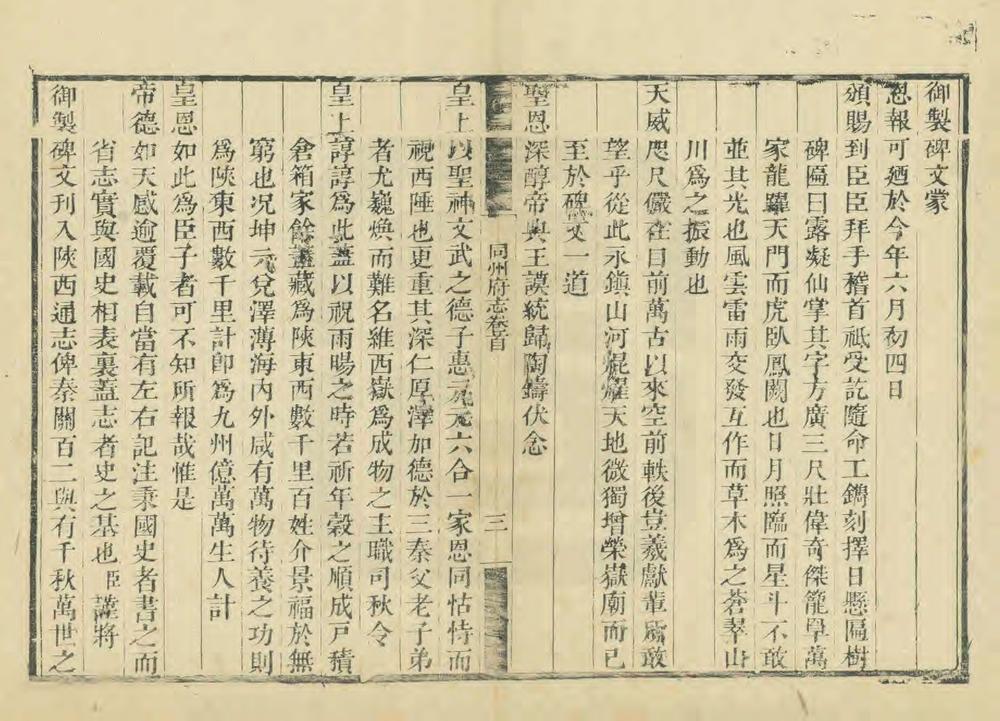 御製碑文蒙
恩報可廼於今年六月初四日
頒賜到臣臣拜手稽首祗受訖隨命工鐫刻擇日懸匾樹
碑匾曰露凝仙掌其字方廣三尺壯偉奇傑籠罩萬
家龍躍天門而虎臥鳳闕也日月照臨而星斗不敢
並其光也風雲雷雨交發互作而草木為之蒼翠山
川為之振動也
天威咫尺儼在目前萬古以來空前軼後豈羲獻輩所敢
望乎從此永鎮山河焜燿天地微獨增榮嶽廟而已
至於碑文一道
聖恩深醇帝典王謨統歸陶鑄伏念
同州府志卷首
三
皇上以聖神文武之德子惠元元六合一家恩同怙恃而
視西陲也更重其深仁厚澤加德於三秦父老子弟
者尤巍煥而難名維西嶽為成物之主職司秋令
皇上諄諄為此蓋以祝雨暘之時若祈年穀之順成戸積
倉箱家餘蓋藏為陝東西數千里百姓介景福於無
窮也况坤元兌澤薄海內外咸有萬物待養之功則
為陝東西數千里計卽為九州億萬萬生人計
皇恩如此為臣子者可不知所報哉惟是
帝德如天感逾覆載自當有左右記注秉國史者書之而
省志實與國史相表裏蓋志者史之基也臣謹將
御製碑文刊入陝西通志俾秦關百二與有千秋萬世之